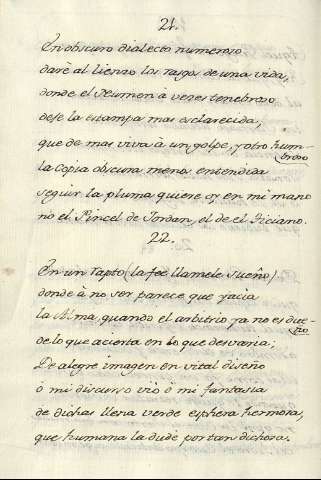 21.
En obscuro dialecto numeroso
daré al lienzo los rasgos de una vida,
donde el Numen à veces tenebroso
dese la estampa mas esclarecida;
que de mas viva à un golpe, y otro hum-
broso
la Copia obscura menos entendida
seguir la pluma quiere oy en mi mano
no el Pincel de Jordan, el de el Ticiano.
22.
En un rapto (la fee llamele sueño)
donde à no ser parece que yacia
la Alma quando el arbitrio ya no es due-
ño
de lo que acierta en lo que desvaria;
De alegre imagen en vital diseño
ó mi discurso vió ó mi fantasia
de dichas llena verde esphera hermosa,
que humana la dudé por tan dichosa.